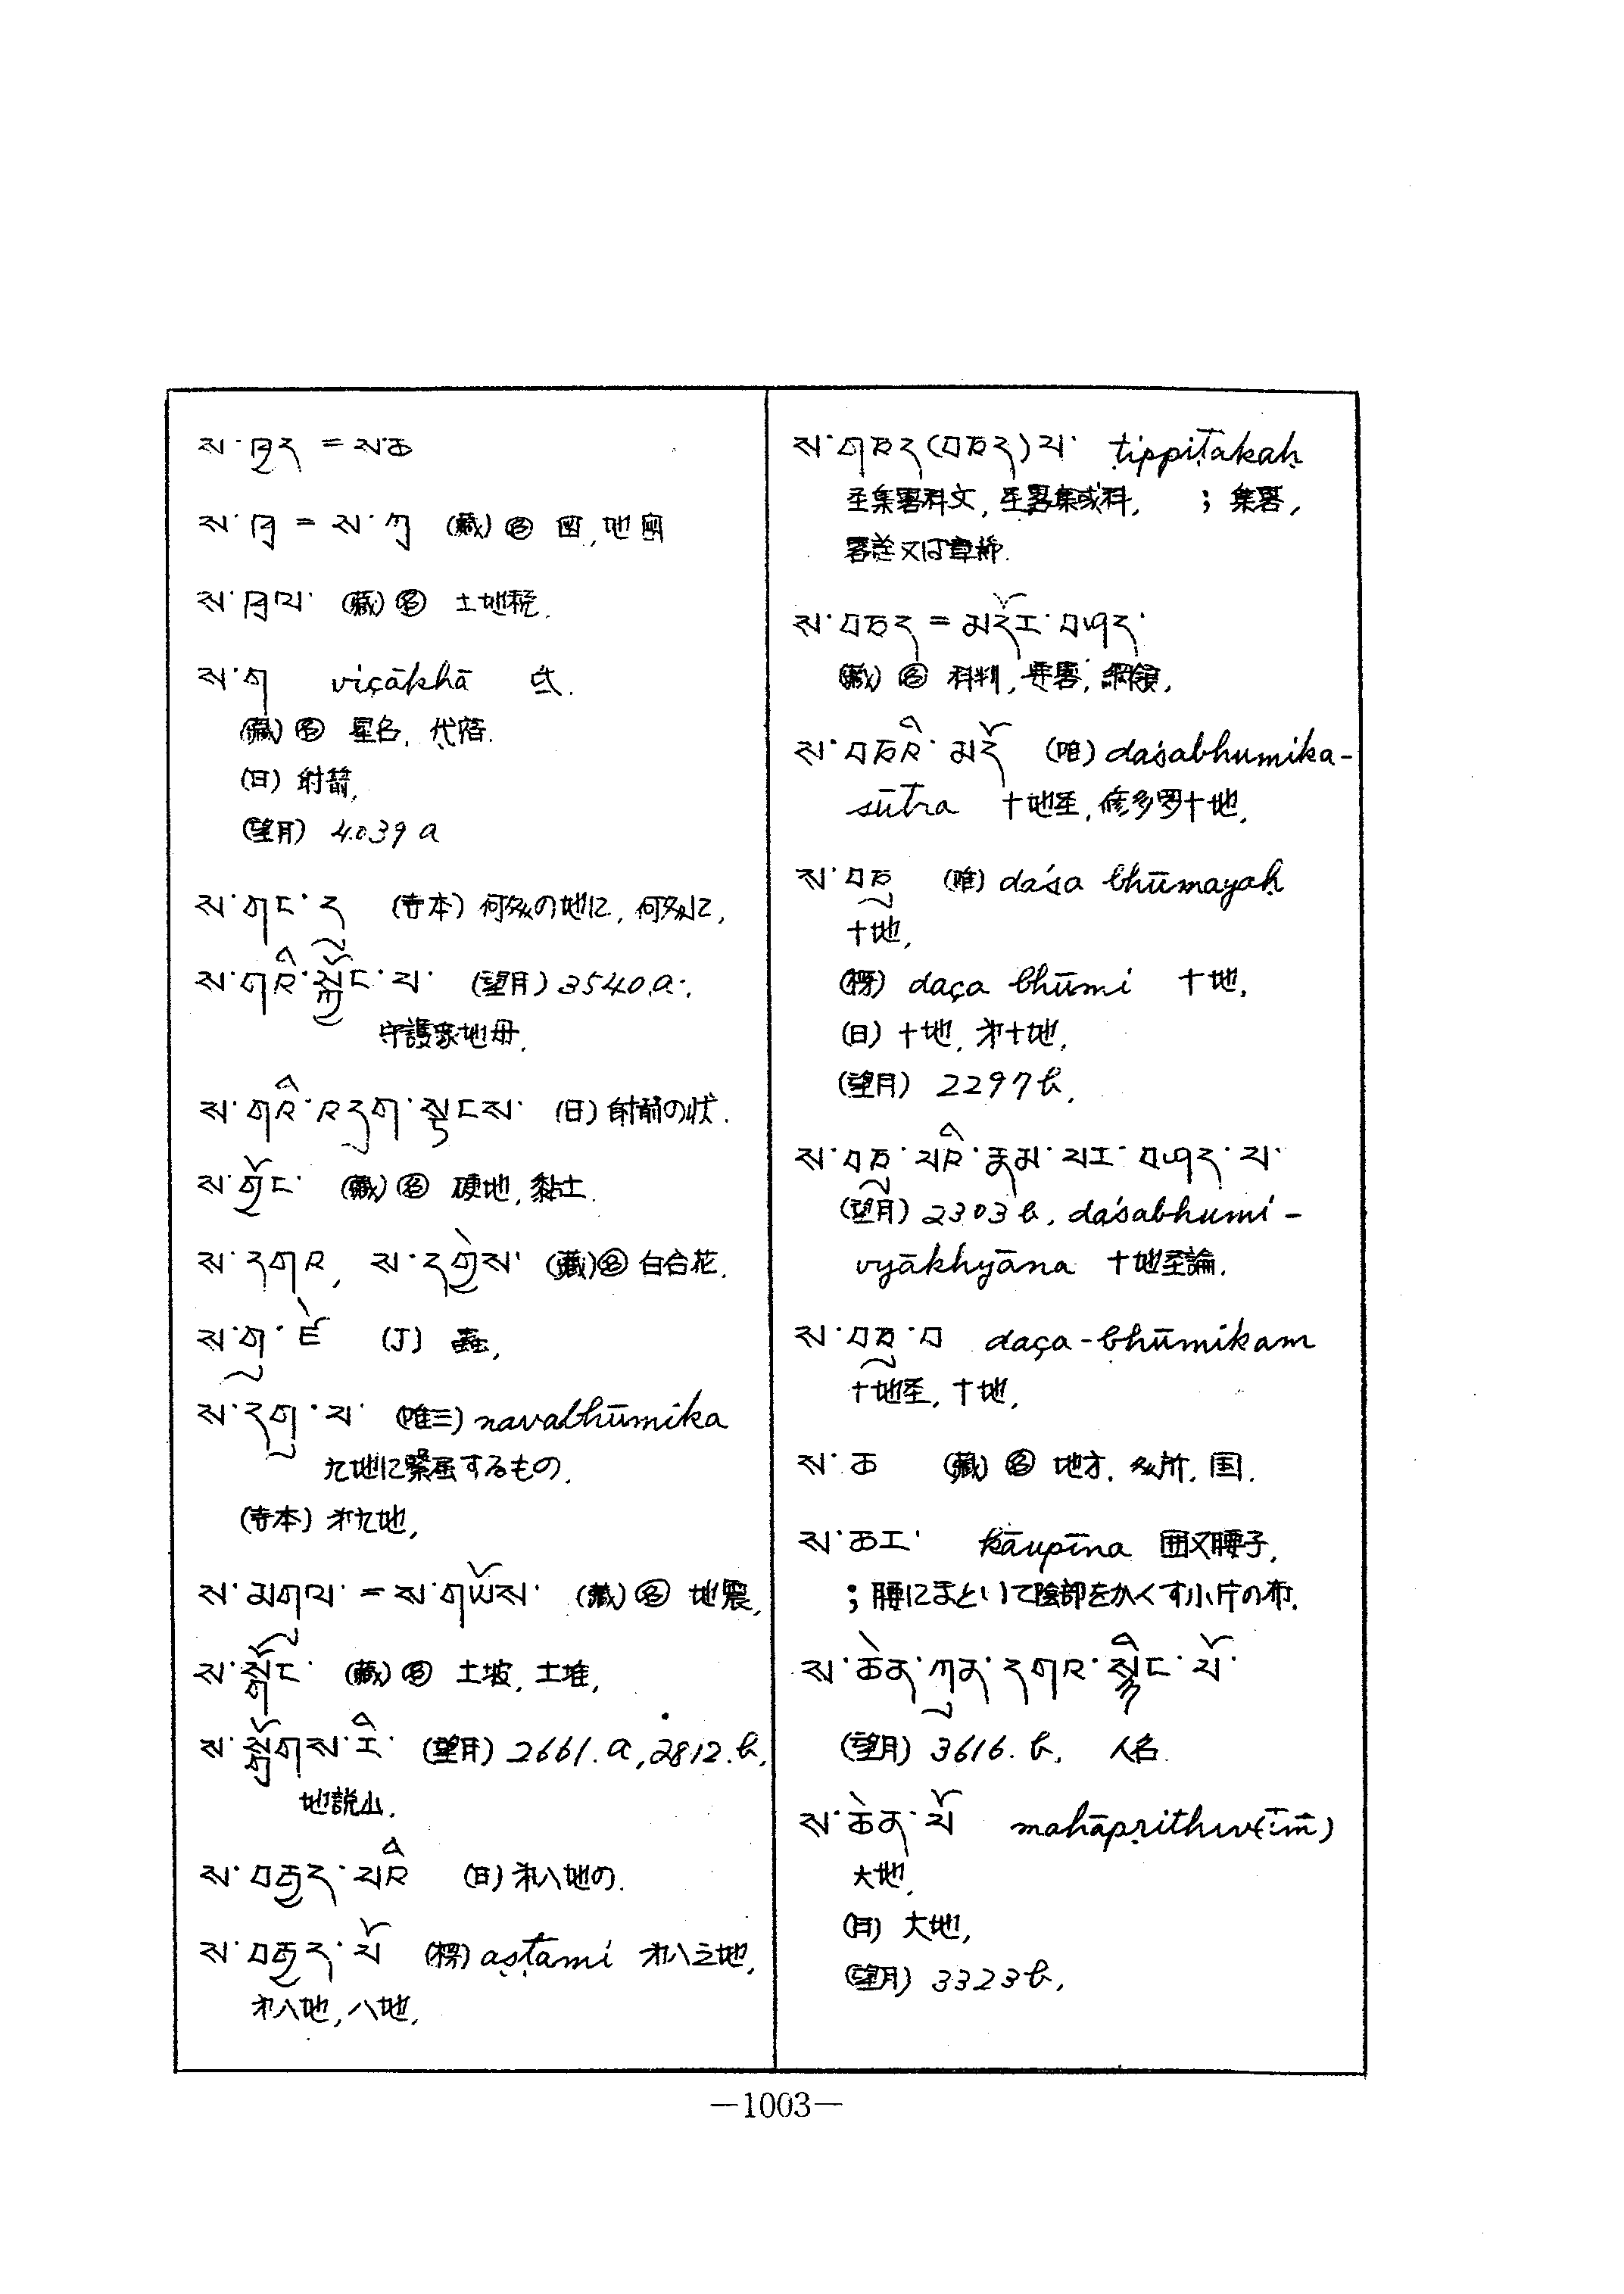 ས་ཁྱད = ས་ཆ
ས་ཁྲ = ས་ཀྲ (藏) 图 图, 地图
ས་ཁྲལ་ (藏) 名 土地税.
ས་ག viçākhā 氐.
(藏) 名 星名,
(日) 射箭,
(望月) 4039 a
ས་གང་ད (寺本) 何処の地に, 何処に,
ས་གའི་སྐྱོང་མ་ (望月) 3540.a.
守護家地母.
ས་གའི་ (日) 射箭の状.
ས་གྱོང་ (藏) 名 硬地, 黏土.
ས་དཀར, (藏) 名 白合花.
(J) 蟲,
ས་དགུ་པ་ (唯三) navabhūmika
九地に繋属するもの.
(寺本) 才九地,
ས་འགུལ་ = ས་གཡོས་ (藏) 名 地震,
ས་སྒང་ (藏) 名 土坡, 土堆,
(望月) 2661.a, 2812.b,
地説山.
ས་བརྒྱད་པའི (日) 才八地の.
ས་བརྒྱད་པོ (楞) aṣṭami 才八之地,
才八地, 八地,
ས་གཅད(བཅད)པ་ ṭippiṭakaḥ
; 集畧,
又は章節.
ས་བཅད = མདོར་བཤད་
(藏) 名 科判, 要畧, 綱領,
ས་བཅའི་མདོ (唯) daśabhumika-
sūtra 十地圣, 修多罗十地,
ས་བཅུ (唯) daśa bhūmayaḥ
十地,
(楞) daça bhūmi 十地,
(日) 十地, 才十地,
(望月) 2297 b,
ས་བཅུ་པའི་རྣམ་པར་བཤད་པ་
(望月) 2303 b, daśabhumi-
vyākhyāna 十地圣論.
ས་བཅུ་པ daça-bhūmikam
十地圣, 十地,
ས་ཆ (藏) 名 地方, 処所, 国.
ས་ཆར་ kāupīna 腰子,
; 腰にまといて陰部をかくす小片の布.
ས་ཆེན་ཀུན་དགའ་སྙིང་པོ་
(望月) 3616. b, 人名.
ས་ཆེན་པོ mahāpṛithiv(īm̄)
大地,
(日) 大地,
(望月) 3323 b,
—1003—